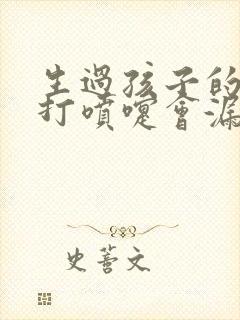 生過孩子的
打噴嚏會漏
史蕾文